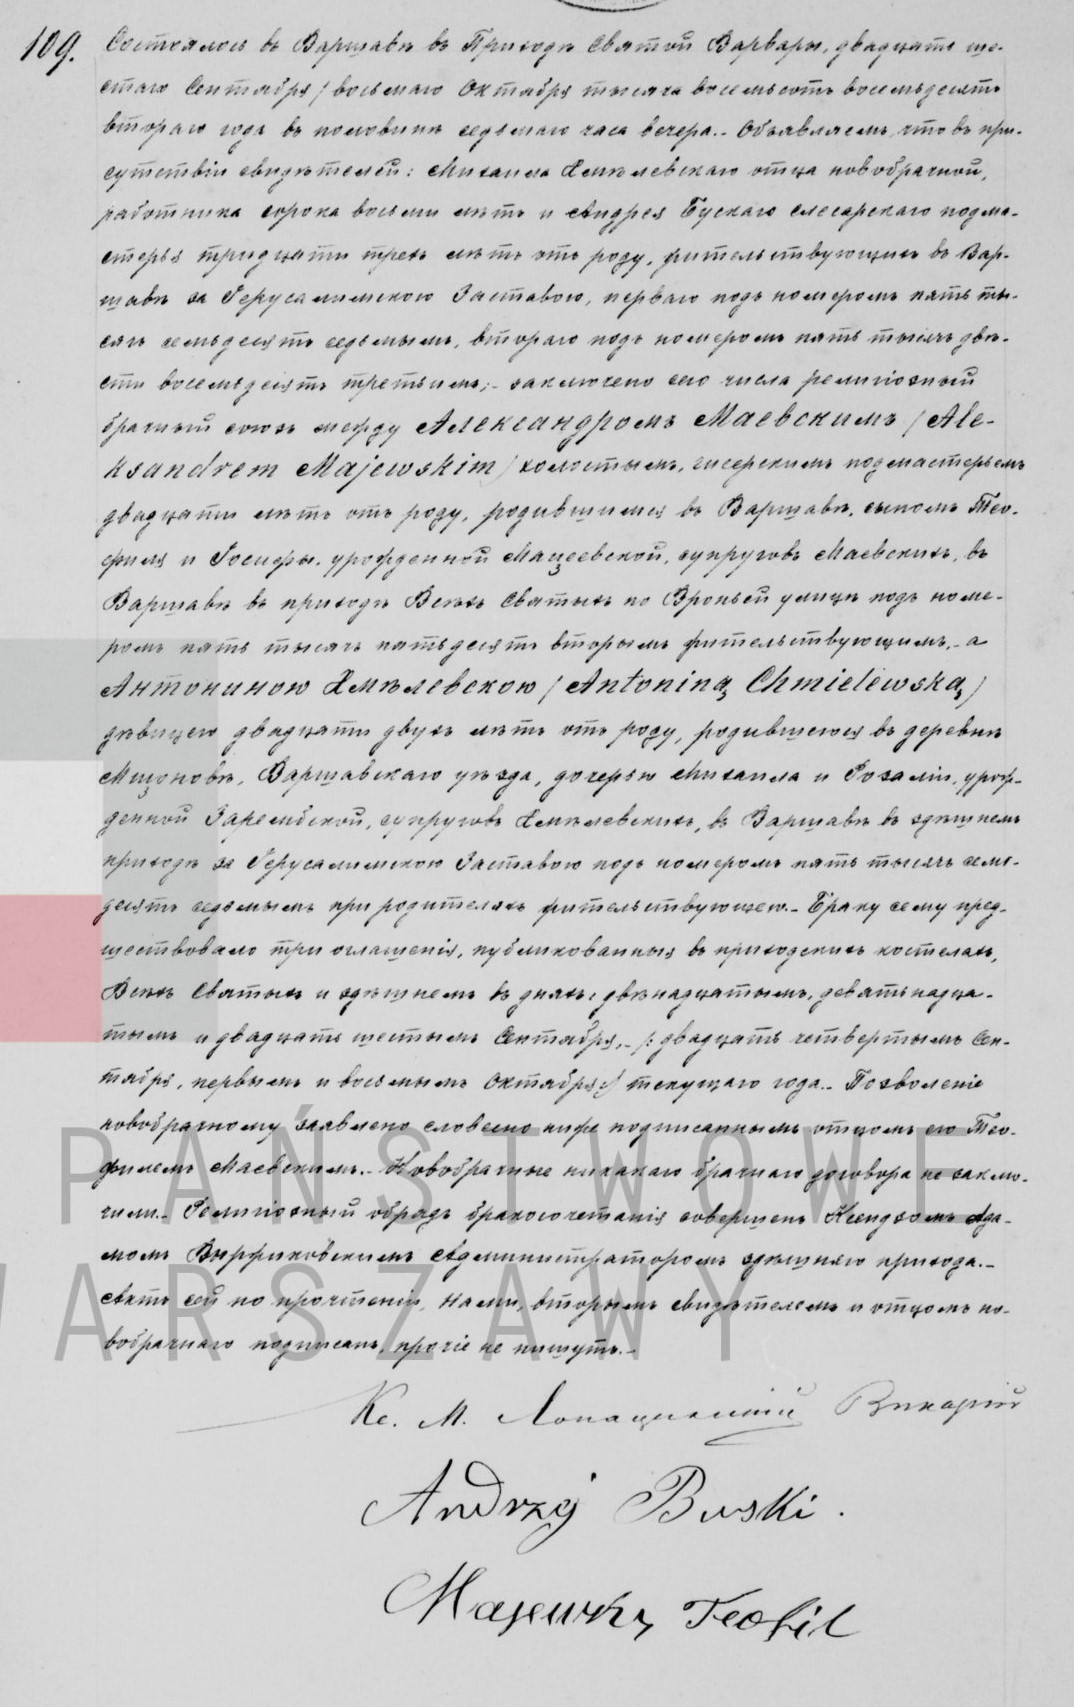 109.
Состоялось въ Варшавѣ въ Приходѣ Святой Варвары, двадцать ше-
стаго Сентября / восьмаго Октября тысяча восемьсотъ восемьдесятъ
втораго года въ половинѣ седьмаго часа вечера.- Объявляемъ, что въ при-
сутствіи свидѣтелей: Михаила Хмѣлевскаго отца новобрачной,
работника сорока восьми лѣтъ и Андрея Бускаго слесарскаго подма-
стерья тридцати трехъ лѣтъ отъ роду, жительствующихъ въ Вар-
шавѣ за Іерусалимскою Заставою, перваго подъ номеромъ пять ты-
сячъ семьдесятъ седьмымъ, втораго подъ номеромъ пять тысячъ двѣ-
сти восемьдесятъ третьимъ;- заключено сего числа религіозный
брачный союзъ между Александромъ Маевскимъ / Ale-
ksandrem Majewskim / холостымъ, гисерскимъ подмастерьемъ
двадцати лѣтъ отъ роду, родившимся въ Варшавѣ, сыномъ Тео-
филя и Іосифы, урожденной Мацеевской, супруговъ Маевскихъ, въ
Варшавѣ въ приходѣ Всѣхъ Святыхъ по Вроньей улицѣ подъ номе-
ромъ пять тысячъ пятьдесятъ вторымъ жительствующимъ,- а
Антониною Хмѣлевскою / Antoniną Chmielewską /
дѣвицею двадцати двухъ лѣтъ отъ роду, родившеюся въ деревнѣ
Мщоновѣ, Варшавскаго уѣзда, дочерью Михаила и Розаліи, урож-
денной Зарембской, супруговъ Хмѣлевскихъ, въ Варшавѣ въ здѣшнемъ
приходѣ за Іерусалимскою Заставою подъ номеромъ пять тысячъ семь-
десятъ седьмымъ при родителяхъ жительствующею.- Браку сему пред-
шествовало три оглашенія, публикованныя въ приходскихъ костелахъ,
Всѣхъ Святыхъ и здѣшнемъ въ дняхъ: двѣнадцатымъ, девятнадца-
тымъ и двадцать шестымъ Сентября,- /: двадцать четвертымъ Сен-
тября, первымъ и восьмымъ Октября :/ текущаго года.- Позволеніе
новобрачному заявлено словесно ниже подписаннымъ отцомъ его Тео-
филемъ Маевскимъ.- Новобрачные никакаго брачнаго договора не заклю-
чили.- Религіозный обрядъ бракосочетанія совершенъ Ксендзомъ Ада-
момъ Администраторомъ здѣшняго прихода.-
Актъ сей по прочтеніи, Нами, вторымъ свидѣтелемъ и отцомъ но-
вобрачнаго подписанъ, прочіе не пишутъ.-
Кс. М. Викарій
Andrzej Buski.
Majewsky Teofil
PAŃSTWOWE
WARSZAWY